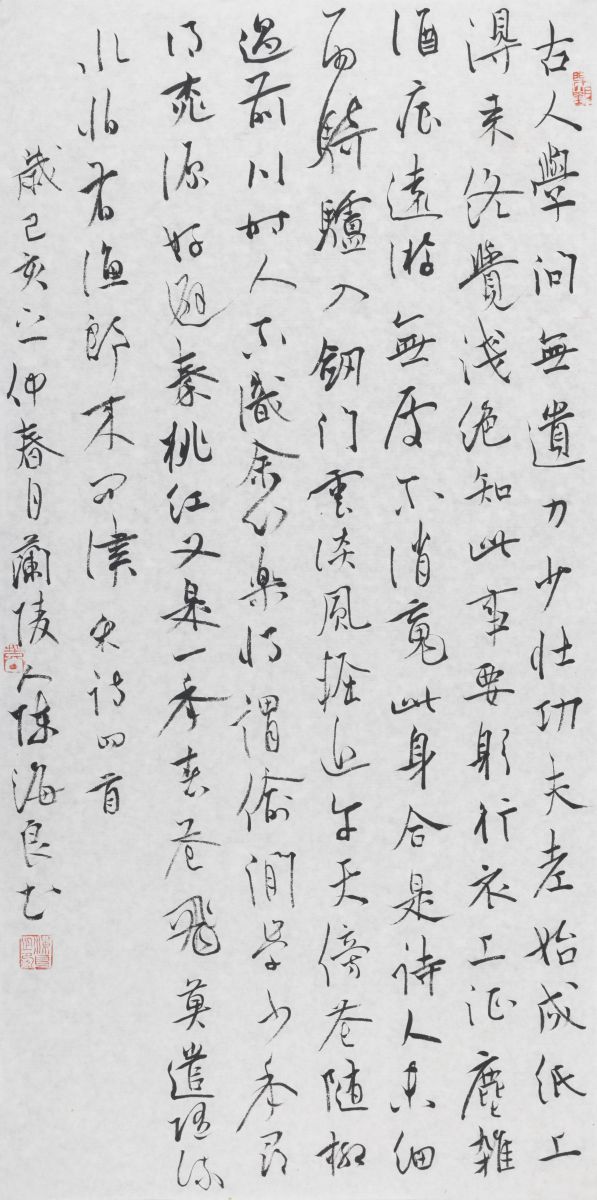 古人學问無遺力少壮功夫老始成纸上
得来终覺淺绝知此事要躬行衣上征塵雜
酒痕遠游無處不消魂此身合是诗人未细
雨騎驢入劔门雲淡風輕近午天傍花随柳
過前川时人不識余心樂将謂偷閒学少年尋
得桃源好避秦桃红又是一年春花飛莫遣随流
水怕有漁郎来问津 宋诗四首
歲己亥之仲春月蘭陵人陈海良书